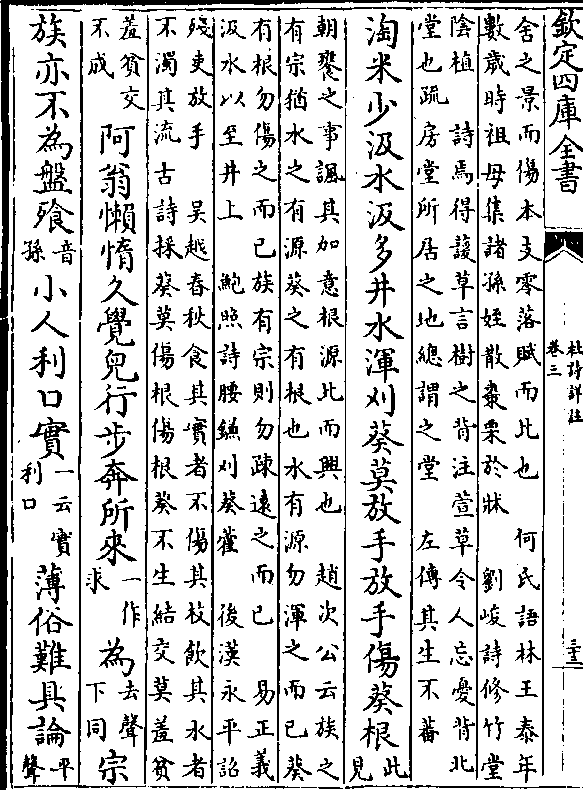 欽定四庫全書
杜詩詳註
卷三
三十三
舍之景而傷本支零落賦而比也　何氏語林王泰年
數歲時祖母集諸孫姪散棗栗於牀　劉峻詩修竹堂
陰植　詩焉得諼草言樹之背注萱草令人忘憂背北
堂也疏房堂所居之地總謂之堂　左傳其生不蕃
淘米少汲水汲多井水渾刈葵莫放手放手傷葵根此見
朝饔之事諷其加意根源比而興也　趙次公云族之
有宗猶水之有源葵之有根也水有源勿渾之而已葵
有根勿傷之而已族有宗則勿疎遠之而已　易正義
汲水以至井上　鮑照詩腰鐮刈葵藿　後漢永平詔
殘吏放手　吳越春秋食其實者不傷其枝飲其水者
不濁其流　古詩採葵莫傷根傷根葵不生結交莫羞貧
羞貧交不成　阿翁懶惰久覺兒行步奔所來一作求為去聲下同宗
族亦不為盤飧音孫小人利口實一云實利口薄俗難具論平聲